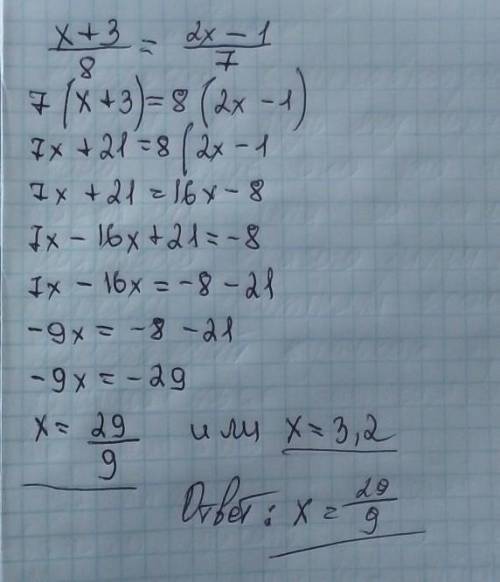 x+3/8 = 2x-1/7
7(x+3)=8(2x-1)
7x+21=8(2x-1
7x+21=16x-8
7x-16x+21=-8
7x-16x=-8-21
-9x=-8-21
-9x=-29
x=29/9 или x=3,2
Ответ: x=29/9